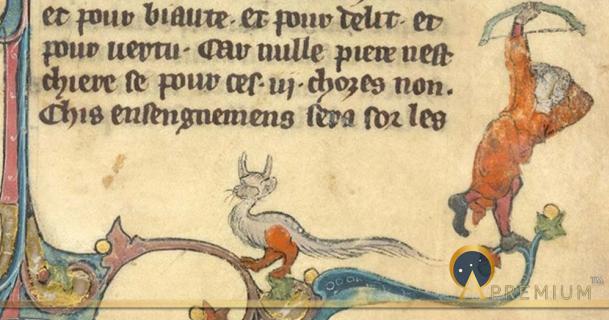 et pour biaute · et pour delit · et
pour uertu · Car nulle piere nest
chiere se pour ces · iij · chozes non .
Chis ensengnemens sera sor les
PREMIUM™